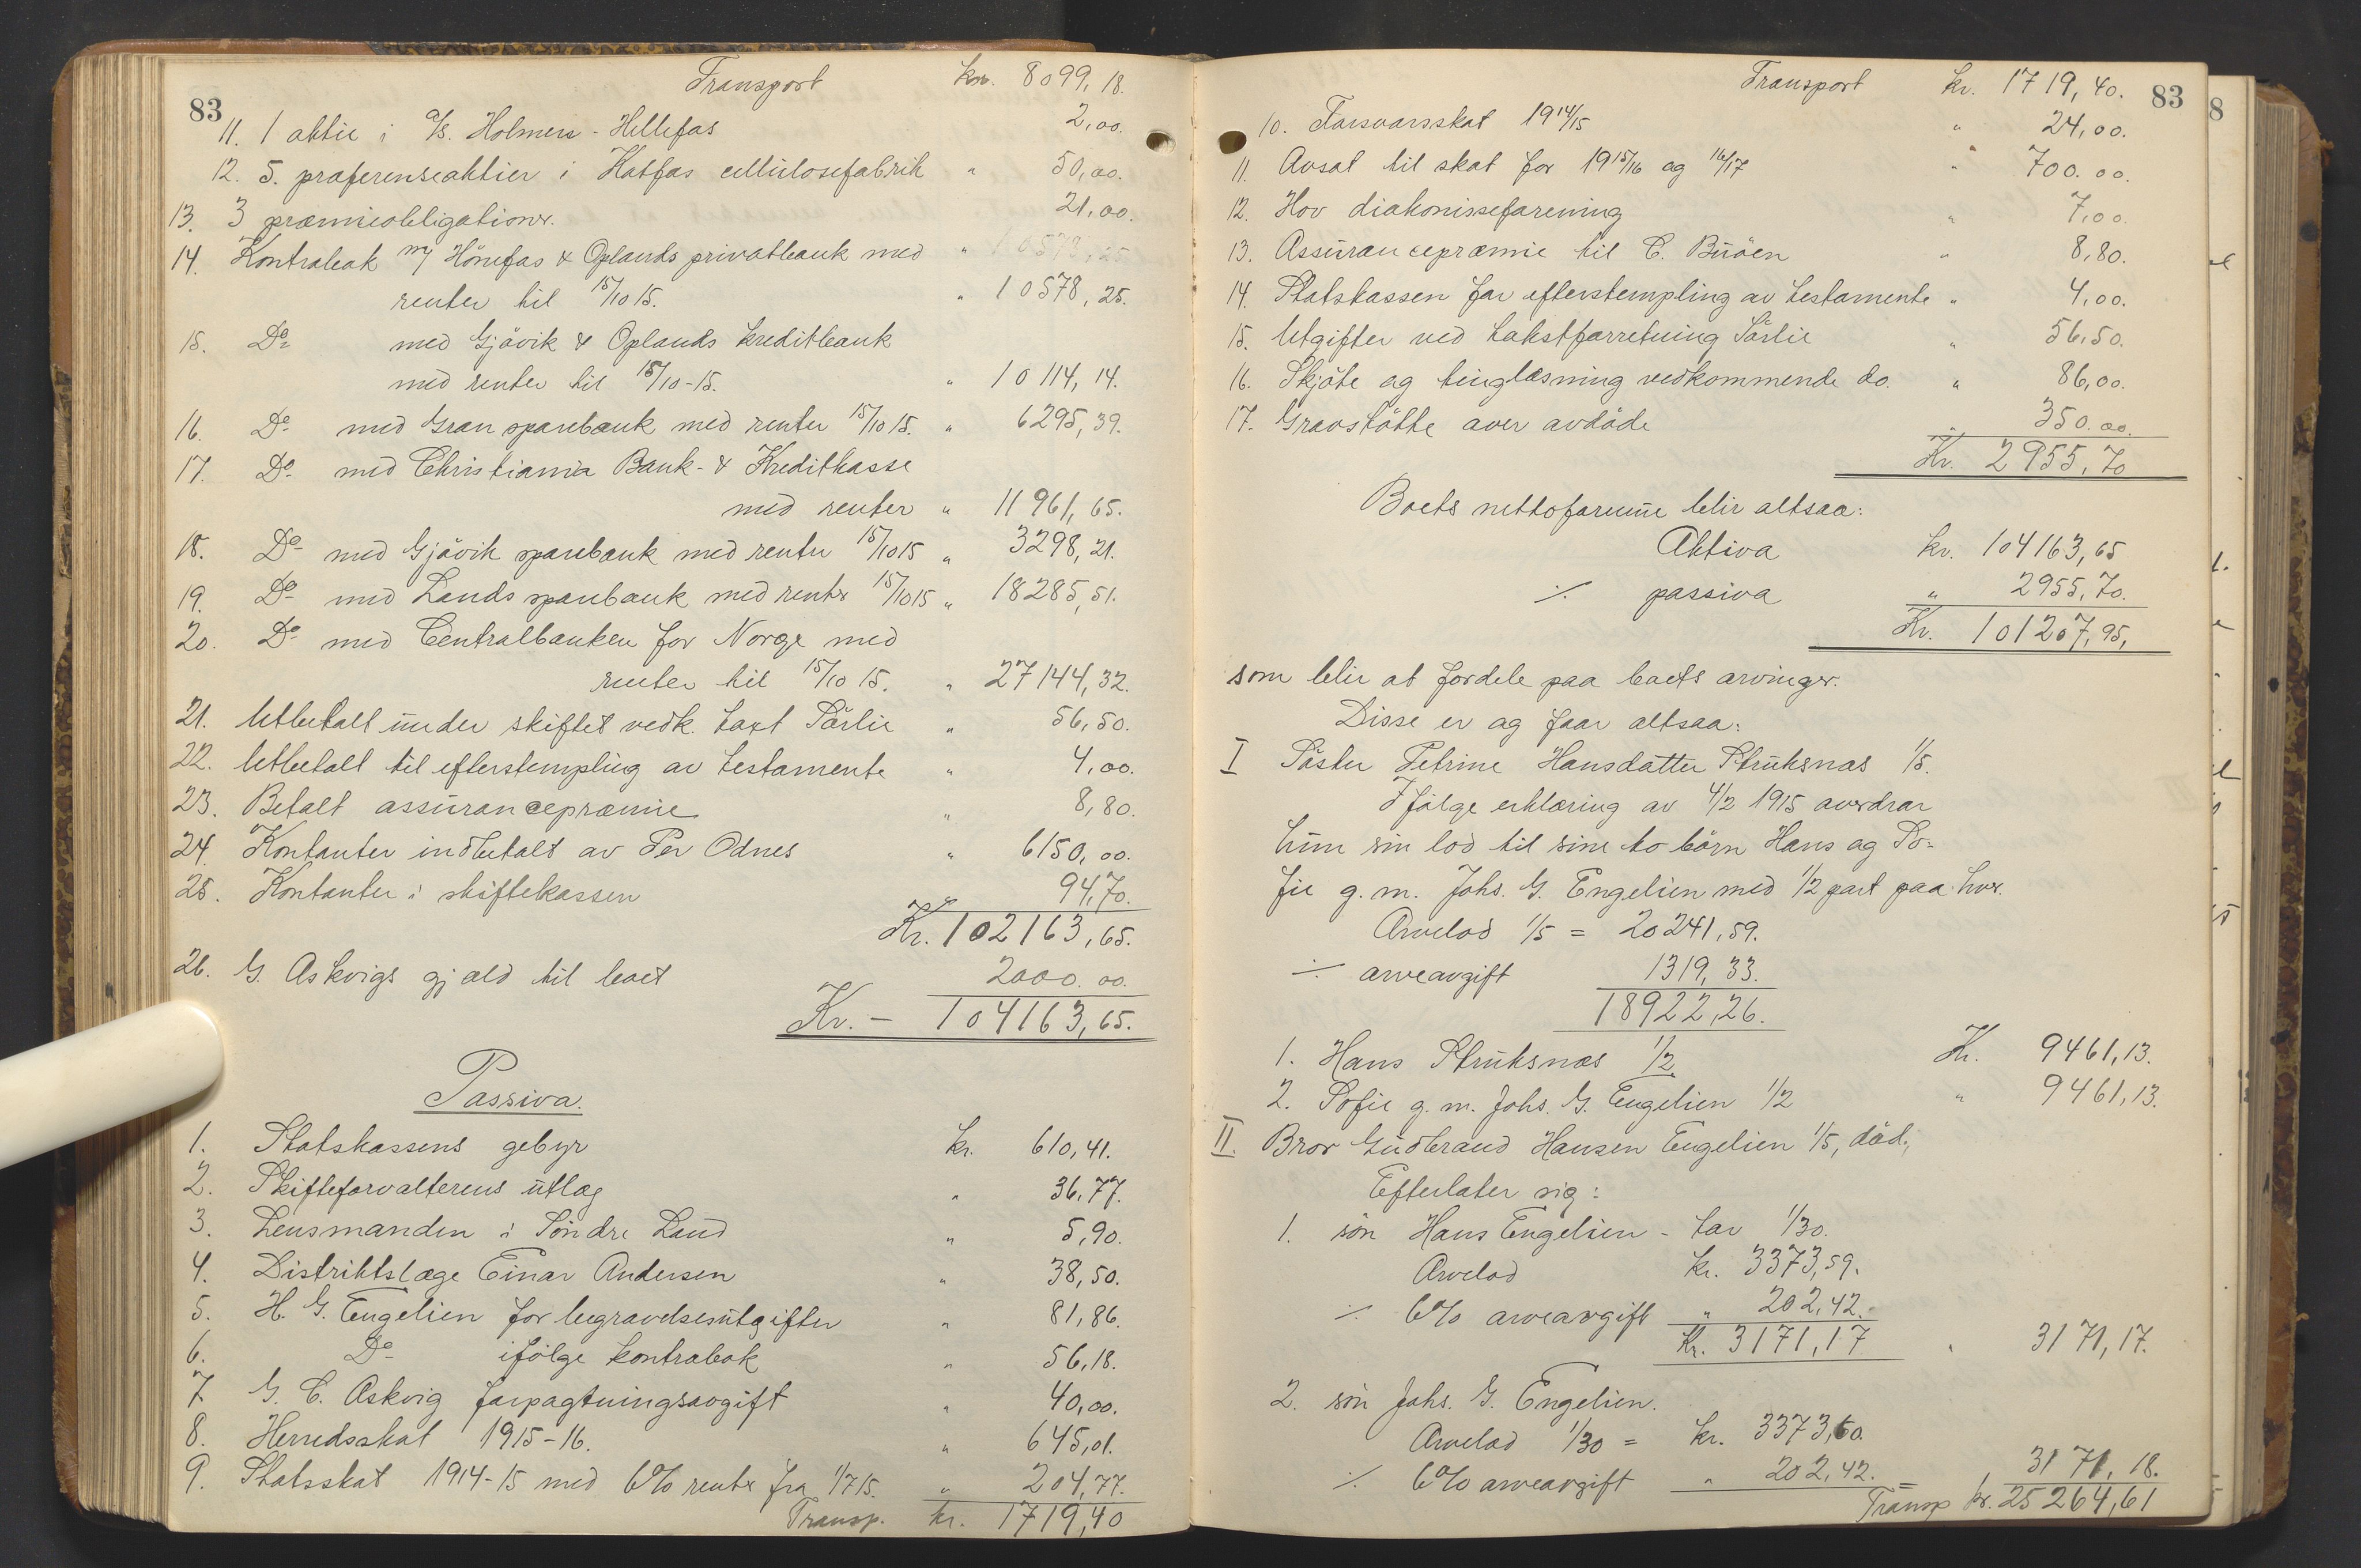 83
Transport kr. 8099,18.
11. 1 aktie i A/S. Holmens - Hellefos 2,00.
12. 5. præferenseaktier i Hatfos cellulosefabrik " 50,00.
13. 3 præmieobligationer. 21,00.
14. Kontrabok m/ Hönefos & Oplands privatbank med " 10578,25
renter til 15/10 15. " 10578,25.
15. Do med Gjövik & Oplands kreditbank
med renter til 15/10-15. " 10114,14.
16. Do med Gran sparebank med renter 15/10 15. " 6295,39.
17. Do med Christiania Bank- & Kreditkasse
med renter " 11961,65.
18. Do med Gjövik sparebank med renter 15/10 15 " 3298,21.
19. Do med Lands sparebank med renter 15/10 15 " 18285,51.
20. Do med Centralbanken for Norge med
renter til 15/10 15. " 27144,32.
21. Utbetalt under skiftet vedk. taxt Sörlie " 56,50.
22. Utbetalt til efterstempling av testamente " 4,00.
23. Betalt assurancepræmie " 8,80.
24. Kontanter indbetalt av Per Odnes " 6150,00.
25. Kontanter i skiftekassen 94,70.
Kr. 102163,65.
26. G. Askvigs gjæld til boet 2000.00.
Kr. - 104163,65.
Passiva.
1. Statskassens gebyr kr. 610,41.
2. Skifteforvalterens utlæg " 36,77.
3. Lensmanden i Söndre Land " 5,90.
4. Distriktslæge Einar Andersen " 38,50.
5. H. G. Engelien for begravelsesutgifter " 81,86.
6. Do ifölge kontrabok " 56,18.
7 G. C. Askvig forpagtningsavgift " 40,00.
8. Herredsskat 1915-16. " 645,01.
9. Statsskat 1914-15 med 6% renter fra 1/7 15. " 204,77.
Transp. kr. 1719,40
Transport kr. 1719,40. 83
10. Forsvarsskat 1914/15 " 24,00.
11. Avsat til skat for 1915/16 og 16/17 " 700.00.
12. Hov diakonisseforening " 7,00.
13. Assurancepræmie til C. Buöen " 8,80.
14. Statskassen for efterstempling av testamente " 4,00.
15. Utgifter ved takstforretning Sörlie " 56,50.
16. Skjöte og tinglæsning vedkommende do. " 86,00.
17. Gravstötte over avdöde " 350.00.
Kr. 2955,70
Boets nettoformue blir altsaa:
Aktiva kr. 104163,65
÷ passiva " 2955,70.
Kr. 101207,95,
som blir at fordele paa boets arvinger.
Disse er og faar altsaa:
I Söster Petrine Hansdatter Struksnæs 1/5.
Ifölge erklæring av 4/2 1915 overdrar
hun sin lod til sine to börn Hans og So-
fie g. m. Johs. G. Engelien med 1/2 part paa hver.
Arvelod 1/5 = 20241,59.
÷ arveavgift 1319,33.
18922,26.
1. Hans Struksnæs 1/2 Kr. 9461,13.
2. Sofie g. m. Johs. G. Engelien 1/2 " 9461,13.
II. Bror Gudbrand Hansen Engelien 1/5, död,
Efterlater sig:
1. sön Hans Engelien - tar 1/30.
Arvelod kr. 3373,59.
÷ 6% arveavgift " 202,42.
Kr. 3171,17 " 3171,17.
2. sön Johs. G. Engelien.
Arvelod 1/30 = kr. 3373,60.
÷ 6% arveavgift " 202,42. = 3171,18.
Transp kr. 25264,61